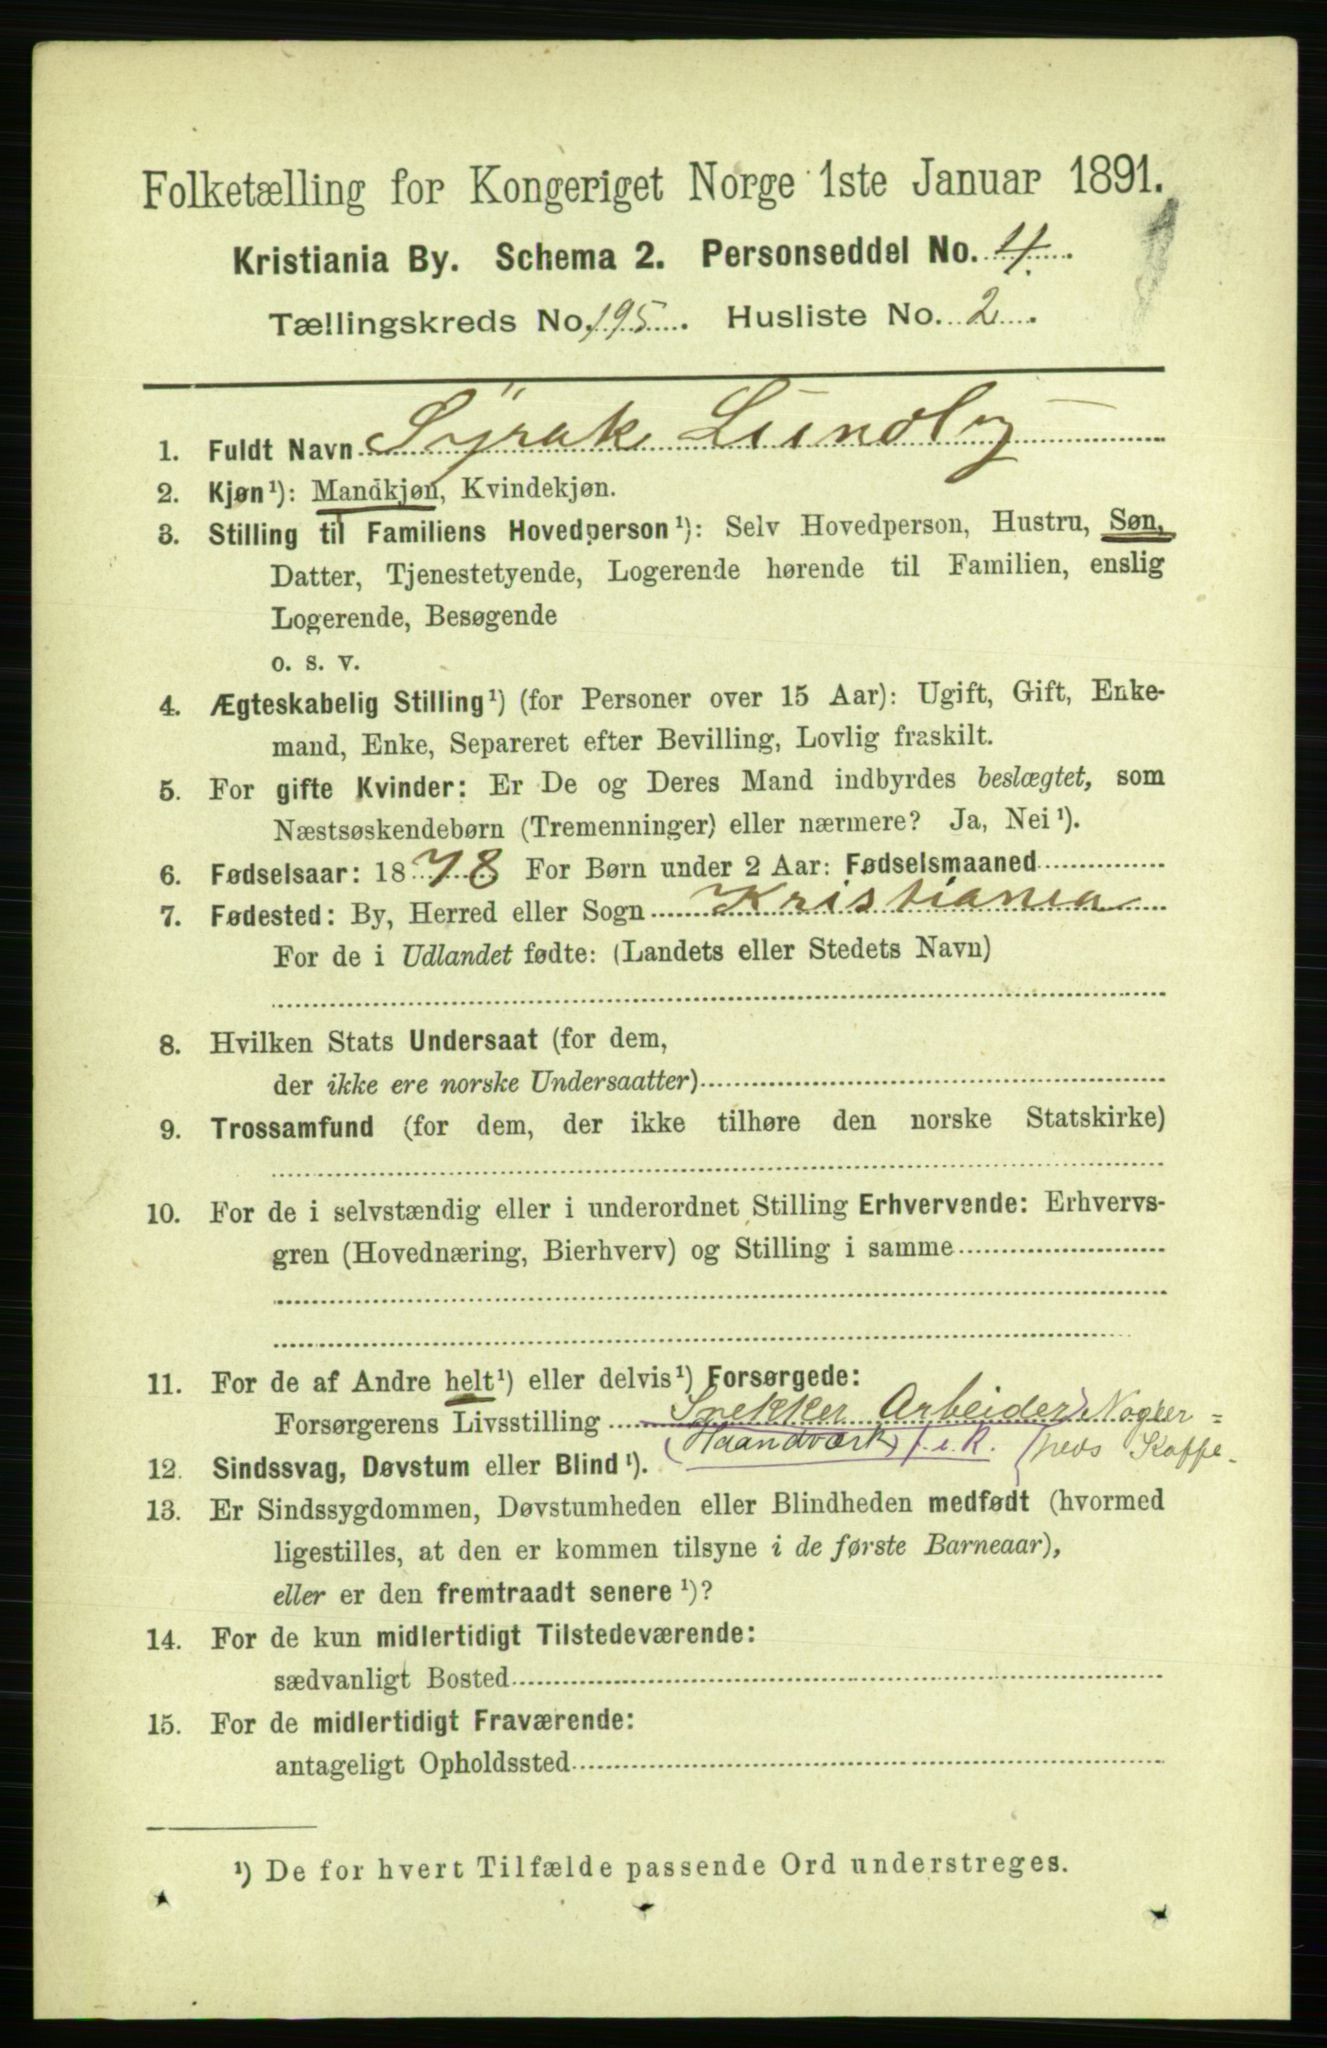 Folketælling for Kongeriget Norge 1ste Januar 1891.
Kristiania By. Schema 2. Personseddel No. 4.
Tællingskreds No. 195. Husliste No. 2.
1. Fuldt Navn Syrak Lundby
2. Kjøn¹): Mandkjøn, Kvindekjøn.
3. Stilling til Familiens Hovedperson¹): Selv Hovedperson, Hustru, Søn,
Datter, Tjenestetyende, Logerende hørende til Familien, enslig
Logerende, Besøgende
o. s. v.
4. Ægteskabelig Stilling¹) (for Personer over 15 Aar): Ugift, Gift, Enke-
mand, Enke, Separeret efter Bevilling, Lovlig fraskilt.
5. For gifte Kvinder: Er De og Deres Mand indbyrdes beslægtet, som
Næstsøskendebørn (Tremenninger) eller nærmere? Ja, Nei¹).
6. Fødselsaar: 1878 For Børn under 2 Aar: Fødselsmaaned
7. Fødested: By, Herred eller Sogn Kristiania
For de i Udlandet fødte: (Landets eller Stedets Navn)
8. Hvilken Stats Undersaat (for dem,
der ikke ere norske Undersaatter)
9. Trossamfund (for dem, der ikke tilhøre den norske Statskirke)
10. For de i selvstændig eller i underordnet Stilling Erhvervende: Erhvervs-
gren (Hovednæring, Bierhverv) og Stilling i samme
11. For de af Andre helt¹) eller delvis¹) Forsørgede:
Forsørgerens Livsstilling Snekker Arbeider
(Haandværk) f. e. k. Kaffe
12. Sindssvag, Døvstum eller Blind¹).
13. Er Sindssygdommen, Døvstumheden eller Blindheden medfødt (hvormed
ligestilles, at den er kommen tilsyne i de første Barneaar),
eller er den fremtraadt senere¹)?
14. For de kun midlertidigt Tilstedeværende:
sædvanligt Bosted
15. For de midlertidigt Fraværende:
antageligt Opholdssted
¹) De for hvert Tilfælde passende Ord understreges.